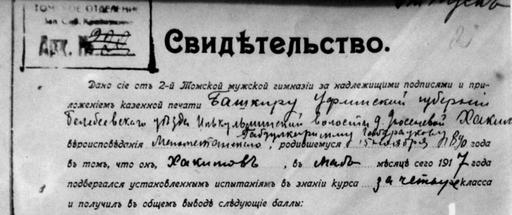 ТОМСКОЕ ОТДЕЛЕНИЕ
Арх. №
Свидѣтельство.
Дано сіе отъ 2-й Томской мужской гимназіи за надлежащими подписями и при-
ложеніемъ казенной печати Башкиру Уфимской губерніи
Белебеевскаго уѣзда волости д. Хаким
вѣроисповѣданія родившемуся 15 ноября года
въ томъ, что онъ, Хакимовъ, въ Маѣ мѣсяцѣ сего 1917 года
подвергался установленнымъ испытаніямъ въ знаніи курса за четыре класса
и получилъ въ общемъ выводѣ слѣдующіе баллы: